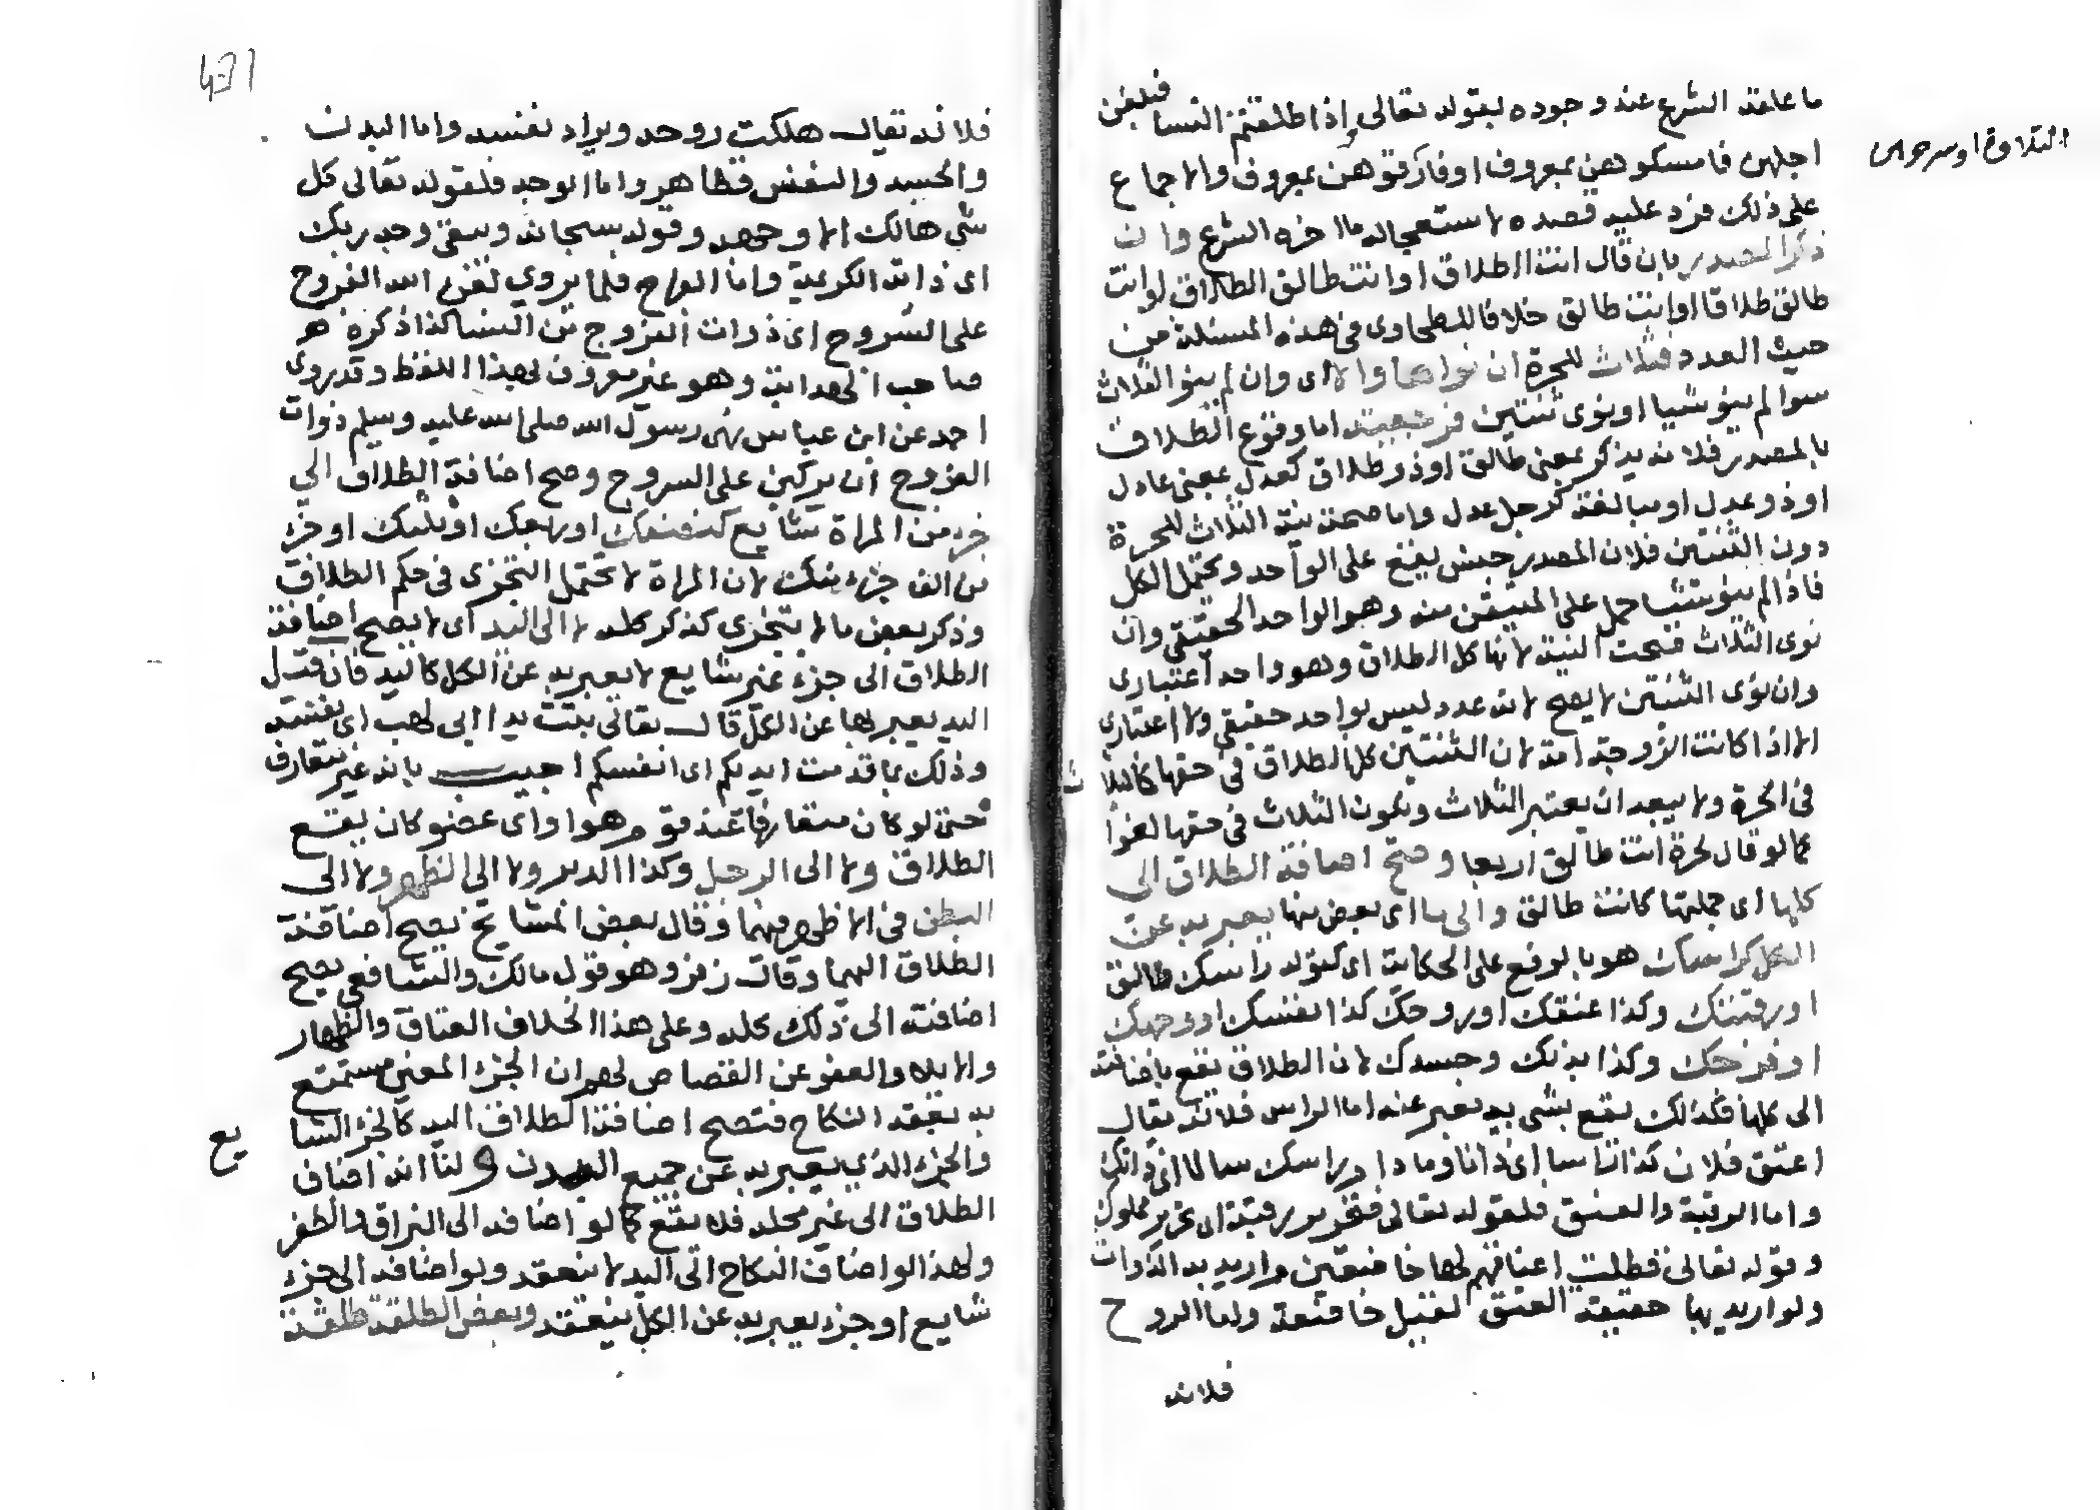 ما علقه الشرع عند وجوده بقوله تعالى وإذا طلقتم النسا فبلغن
اجلهن فامسكوهن بمعروف اوفارقوهن بمعروف والاجماع
التلاوة او سرحوهن
على ذلك فرد عليه قصده لاستعجاله ما اخره الشرع وان
ذكر المصدر بان قال انت الطلاق او انت طالق الطلاق او انت
طالق طلاقا او انت طالق خلافا للطحاوى فى هذه المسئلة من
حيث العدد فثلاث للحرة ان نواها والا اى وان لم ينو الثلاث
سوا لم ينو شيا او نوى ثنتين فرجعية اما وقوع الطلاق
بالمصدر فلانه يذكر بمعنى طالق او ذو طلاق كعدل بمعنى عادل
او ذو عدل او مبالغة كرجل عدل واما صحة نية الثلاث للحرة
دون الثنتين فلان المصدر جنس يقع على الواحد ويحتمل الكل
فاذا لم ينو شيا حمل على المتيقن منه وهو الواحد الحقيقى وان
نوى الثلاث صحت النية لانها كل الطلاق وهو واحد اعتبارى
وان نوى الثنتين لا يصح لانه عدد ليس بواحد حقيقى ولا اعتبارى
الا اذا كانت الزوجة امة لان الثنتين كل الطلاق فى حقها كالثلاث
فى الحرة ولا يبعد ان يعتبر الثلاث ويكون الثالث فى حقها لغوا
كما لو قال لحرة انت طالق اربعا وصح اضافة الطلاق الى
كلها اى جملتها كانت طالق والى ما اى بعض منها يعبر به عن
الكل كراسك هو بالرفع على الحكاية اى كقوله راسك طالق
او رقبتك وكذا عنقك او روحك كذا نفسك او وجهك
او فرجك وكذا بدنك وجسدك لان الطلاق يقع باضافته
الى كلها فكذلك يقع بشى به يعبر عنه اما الراس فلانه يقال
اعتق فلان كذا راسا اى ذاتا وما دام راسك سالما اى ذاتك
واما الرقبة والعنق فلقوله تعالى فتحرير رقبة اى تحرير مملوك
وقوله تعالى فظلت اعناقهم لها خاضعين واريد به الذوات
ولو اريد بها حقيقة العنق لقيل خاضعة واما الروح
فلانه
431
فلانه يقال هلكت روحه ويراد نفسه واما البدن
والجسد والنفس فظاهر واما الوجه فلقوله تعالى كل
شى هالك الا وجهه وقوله سبحانه ويبقى وجه ربك
اى ذاته الكريمة واما الفرج فلما يروى لعن الله الفروج
على السروج اى ذوات الفروج من النسا كذا ذكره هر
صاحب الهداية وهو غير معروف بهذا اللفظ وقد روى
احمد عن ابن عباس نهى رسول الله صلى الله عليه وسلم ذوات
الفروج ان يركبن على السروج وصح اضافة الطلاق الى
جزء من المراة شايع كنصفك او ربعك او ثلثك او جزء
من الف جزء منك لان المراة لا تحتمل التجزى فى حكم الطلاق
وذكر بعض ما لا يتجزى كذكر كله لا الى اليد اى لا يصح اضافة
الطلاق الى جزء غير شايع لا يعبر به عن الكل كاليد فان قيل
اليد يعبر بها عن الكل قال تعالى تبت يدا ابى لهب اى نفسه
وذلك بما قدمت ايديكم اى انفسكم اجيب بانه غير متعارف
حتى لو كان متعارفا عند قوم هوا واى عضو كان يقع
الطلاق ولا الى الرجل وكذا الدبر ولا الى الظهر ولا الى
البطن فى الاظهر منهما وقال بعض المشايخ يصح اضافة
الطلاق اليهما وقال زفر وهو قول مالك والشافعى يصح
اضافته الى ذلك كله وعلى هذا الخلاف العتاق والظهار
والايلا والعفو عن القصاص لهم ان الجزء المعين مستمتع
به بعقد النكاح فتصح اضافة الطلاق اليه كالجزء الشايع
والجزء الذى يعبر به عن جميع البدن ولنا انه اضاف
الطلاق الى غير محله فلا يقع كما لو اضافه الى البزاق والظفر
ولهذا لو اضاف النكاح الى اليد لا ينعقد ولو اضافه الى جزء
شايع او جزء يعبر به عن الكل ينعقد وبعض الطلقة طلقة